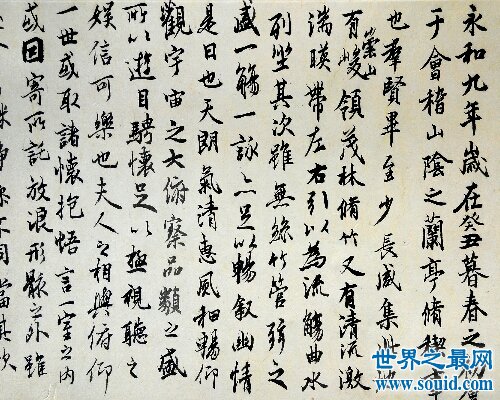 永和九年歲在癸丑暮春之初會
于會稽山陰之蘭亭脩稧事
也羣賢畢至少長咸集此地
有崇山峻領茂林脩竹又有清流激
湍暎帶左右引以為流觴曲水
列坐其次雖無絲竹管弦之
盛一觴一詠亦足以暢敘幽情
是日也天朗氣清惠風和暢仰
觀宇宙之大俯察品類之盛
所以遊目騁懷足以極視聽之
娛信可樂也夫人之相與俯仰
一世或取諸懷抱悟言一室之內
或因寄所託放浪形骸之外雖
不同當其
世界之最网
www.souid.com